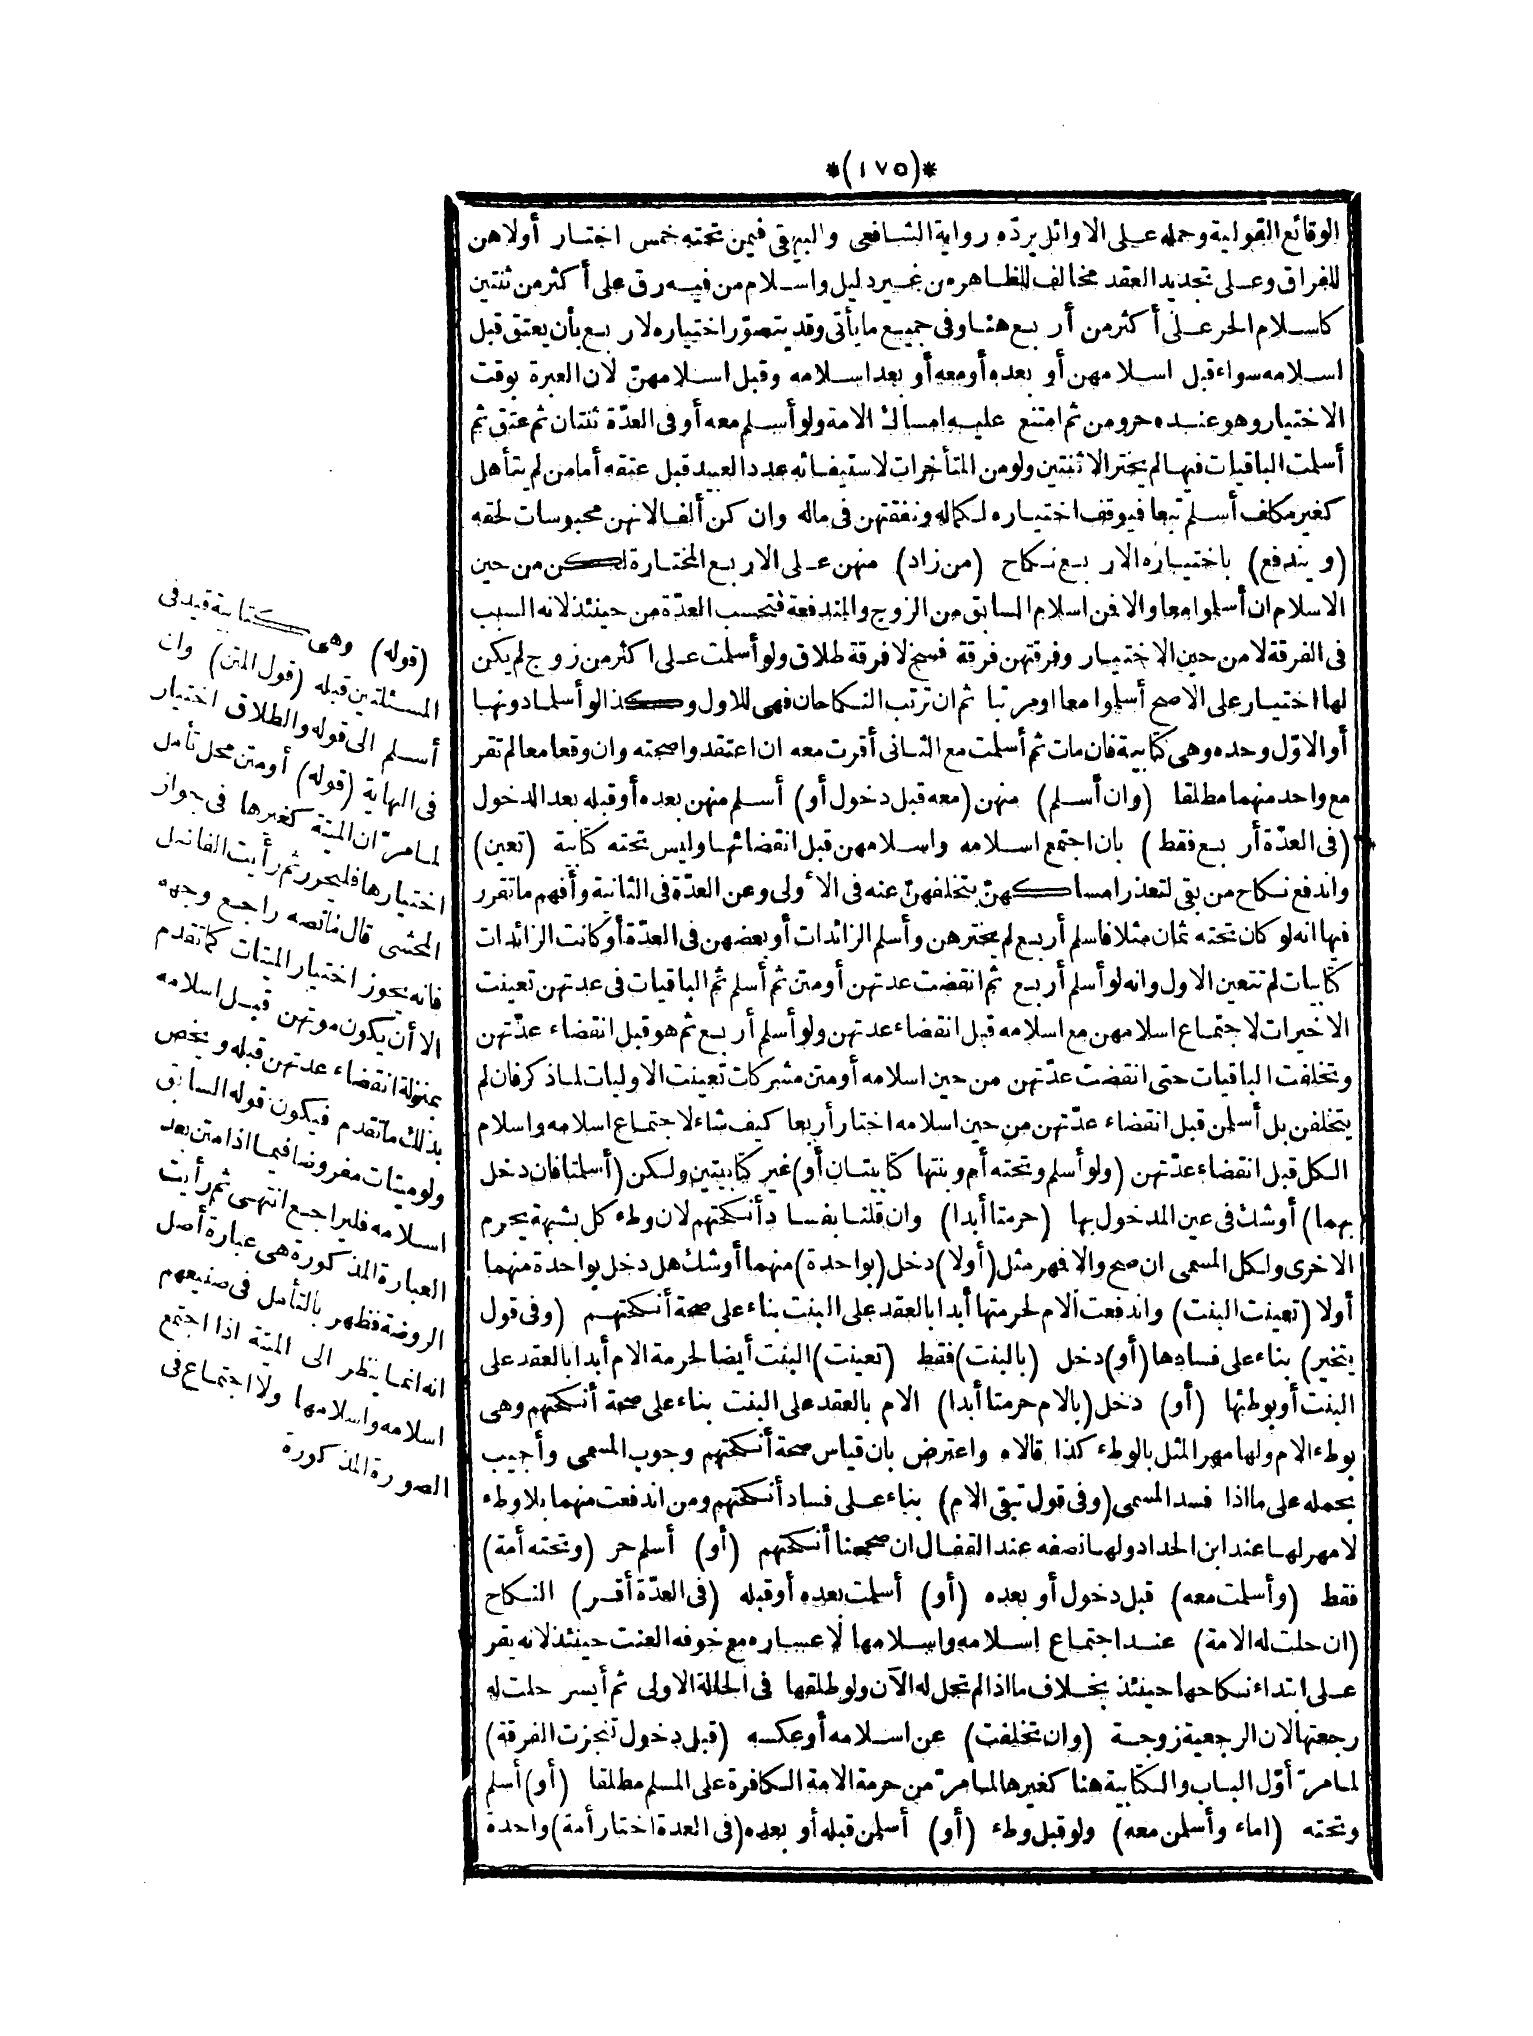 *(١٧٥)*
الوقائع القولية وحمله على الاوائل يردّه رواية الشافعى والبيهقى فيمن تحته خمس اختار أولاهن
للفراق وعلى تجديد العقد مخالف للظاهر من غير دليل واسلام من فيه رق على أكثر من ثنتين
كاسلام الحر على أكثر من أربع هنا وفى جميع ما يأتى وقد يتصوّر اختياره لاربع بأن يعتق قبل
اسلامه سواء قبل اسلامهن أو بعده أومعه أو بعد اسلامه وقبل اسلامهنّ لان العبرة بوقت
الاختيار وهو عنده حرومن ثم امتنع عليه امساك الامة ولو أسلم معه أو فى العدّة ثنتان ثم عتق ثم
أسلمت الباقيات فيها لم يختر الا ثنتين ولومن المتأخرات لاستيفائه عدد العبيد قبل عتقه أمامن لم يتأهل
كغير مكلف أسلم تبعا فيوقف اختياره لكماله ونفقتهن فى ماله وان كن ألفا لانهن محبوسات لحقه
(ويندفع) باختياره الاربع نكاح (من زاد) منهن على الاربع المختارة لكن من حين
الاسلام ان أسلموا معا والا فمن اسلام السابق من الزوج والمندفعة فتحسب العدّة من حينئذ لانه السبب
فى الفرقة لا من حين الاختيار وفرقتهن فرقة فسخ لا فرقة طلاق ولو أسلمت على اكثر من زوج لم يكن
لها اختيار على الاصح أسلموا معا اومرتبا ثم ان ترتب النكاحان فهى للاول وكذا لو أسلما دونها
أو الاوّل وحده وهى كتابية فان مات ثم أسلمت مع الثانى أقرت معه ان اعتقدوا صحته وان وقعا معا لم تقر
مع واحد منهما مطلقا (وان أسلم) منهن (معه قبل دخول أو) أسلم منهن بعده أو قبله بعد الدخول
(فى العدّة أربع فقط) بان اجتمع اسلامه واسلامهن قبل انقضائها وليس تحته كتابية (تعين)
واندفع نكاح من بقى لتعذر امساكهنّ بتخلفهنّ عنه فى الأولى وعن العدّة فى الثانية وأفهم ما تقرر
فيها انه لو كان تحته ثمان مثلا فاسلم أربع لم يخترهن وأسلم الزائدات أو بعضهن فى العدّة أو كانت الزائدات
كتابيات لم تتعين الاول وانه لو أسلم أربع ثم انقضت عدتهن أو متن ثم أسلم ثم الباقيات فى عدتهن تعينت
الاخيرات لاجتماع اسلامهن مع اسلامه قبل انقضاء عدتهن ولو أسلم أربع ثم هو قبل انقضاء عدّتهن
وتخلفت الباقيات حتى انقضت عدّتهن من حين اسلامه أو متن مشركات تعينت الاوليات لما ذكر فان لم
يتخلفن بل أسلمن قبل انقضاء عدّتهن من حين اسلامه اختار أربعا كيف شاء لاجتماع اسلامه واسلام
الكل قبل انقضاء عدّتهن (ولو أسلم وتحته أم وبنتها كتابيتان أو) غير كتابيتين ولكن (أسلمتا فان دخل
بهما) أو شك فى عين المدخول بها (حرمتا أبدا) وان قلنا بفساد أنكحتهم لان وطء كل بشبهة يحرم
الاخرى ولكل المسمى ان صح والا فمهر مثل (أولا) دخل (بواحدة) منهما أو شك هل دخل بواحدة منهما
أولا (تعينت البنت) واندفعت الام لحرمتها أبدا بالعقد على البنت بناء على صحة أنكحتهم (وفى قول
يتخير) بناء على فسادها (أو) دخل (بالبنت) فقط (تعينت) البنت أيضا لحرمة الام أبدا بالعقد على
البنت أو بوطئها (أو) دخل (بالام حرمتا أبدا) الام بالعقد على البنت بناء على صحة أنكحتهم وهى
بوطء الام ولها مهر المثل بالوطء كذا قالاه واعترض بان قياس صحة أنكحتهم وجوب المسمى وأجيب
بحمله على ما اذا فسد المسمى (وفى قول تبقى الام) بناء على فساد أنكحتهم ومن اندفعت منهما بلا وطء
لا مهر لها عند ابن الحداد ولها نصفه عند القفال ان صححنا أنكحتهم (أو) أسلم حر (وتحته أمة)
فقط (وأسلمت معه) قبل دخول أو بعده (أو) أسلمت بعده أو قبله (فى العدّة أقر) النكاح
(ان حلت له الامة) عند اجتماع اسلامه واسلامها لاعساره مع خوفه العنت حينئذ لانه يقر
على ابتداء نكاحها حينئذ بخلاف ما اذا لم تحل له الآن ولو طلقها فى الحالة الاولى ثم أيسر حلت له
رجعتها لان الرجعية زوجة (وان تخلفت) عن اسلامه أو عكسه (قبل دخول تنجزت الفرقة)
لما مرّ أوّل الباب والكتابية هنا كغيرها لما مرّ من حرمة الامة الكافرة على المسلم مطلقا (أو) أسلم
وتحته (اماء وأسلمن معه) ولو قبل وطء (أو) أسلمن قبله أو بعده (فى العدة اختار أمة) واحدة
(قوله) وهى كتابية قيد فى
المسئلتين قبله (قول المتن) وان
أسلم الى قوله والطلاق اختيار
فى النهاية (قوله) أومتن محل تأمل
لما مرّ ان الميتة كغيرها فى جواز
اختيارها فليحرر ثم رأيت الفاضل
المحشى قال ما نصه راجع وجهه
فانه يجوز اختيار الميتات كما تقدم
الا أن يكون موتهن قبل اسلامه
بمنزلة انقضاء عدتهن قبله ويخص
بذلك ما تقدم فيكون قوله السابق
ولو ميتات مفروضا فيما اذا متن بعد
اسلامه فليراجع انتهى ثم رأيت
العبارة المذكورة هى عبارة أصل
الروضة فظهر بالتأمل فى صنيعهم
انه انما ينظر الى الميتة اذا اجتمع
اسلامه واسلامها ولا اجتماع فى
الصورة المذكورة